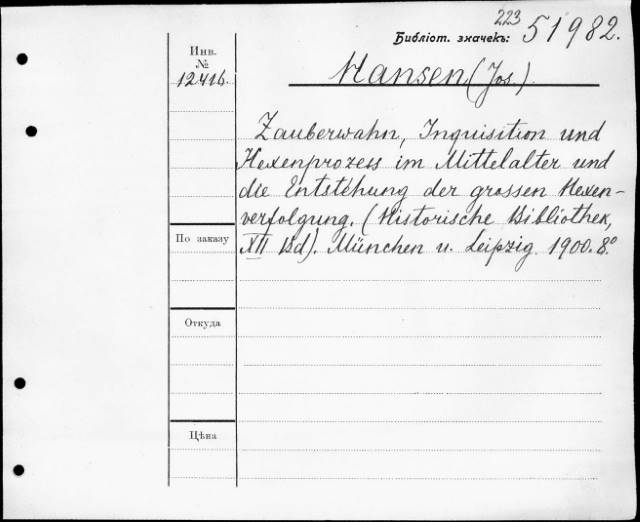 223
Библіот. значекъ: 51982.
Инв.
№
12416.
Hansen (Jos.)
Zauberwahn, Inquisition und
Hexenprozess im Mittelalter und
die Entstehung der grossen Hexen-
verfolgung. (Historische Bibliothek,
XII Bd). München u. Leipzig. 1900. 8.º
По заказу
Откуда
Цѣна